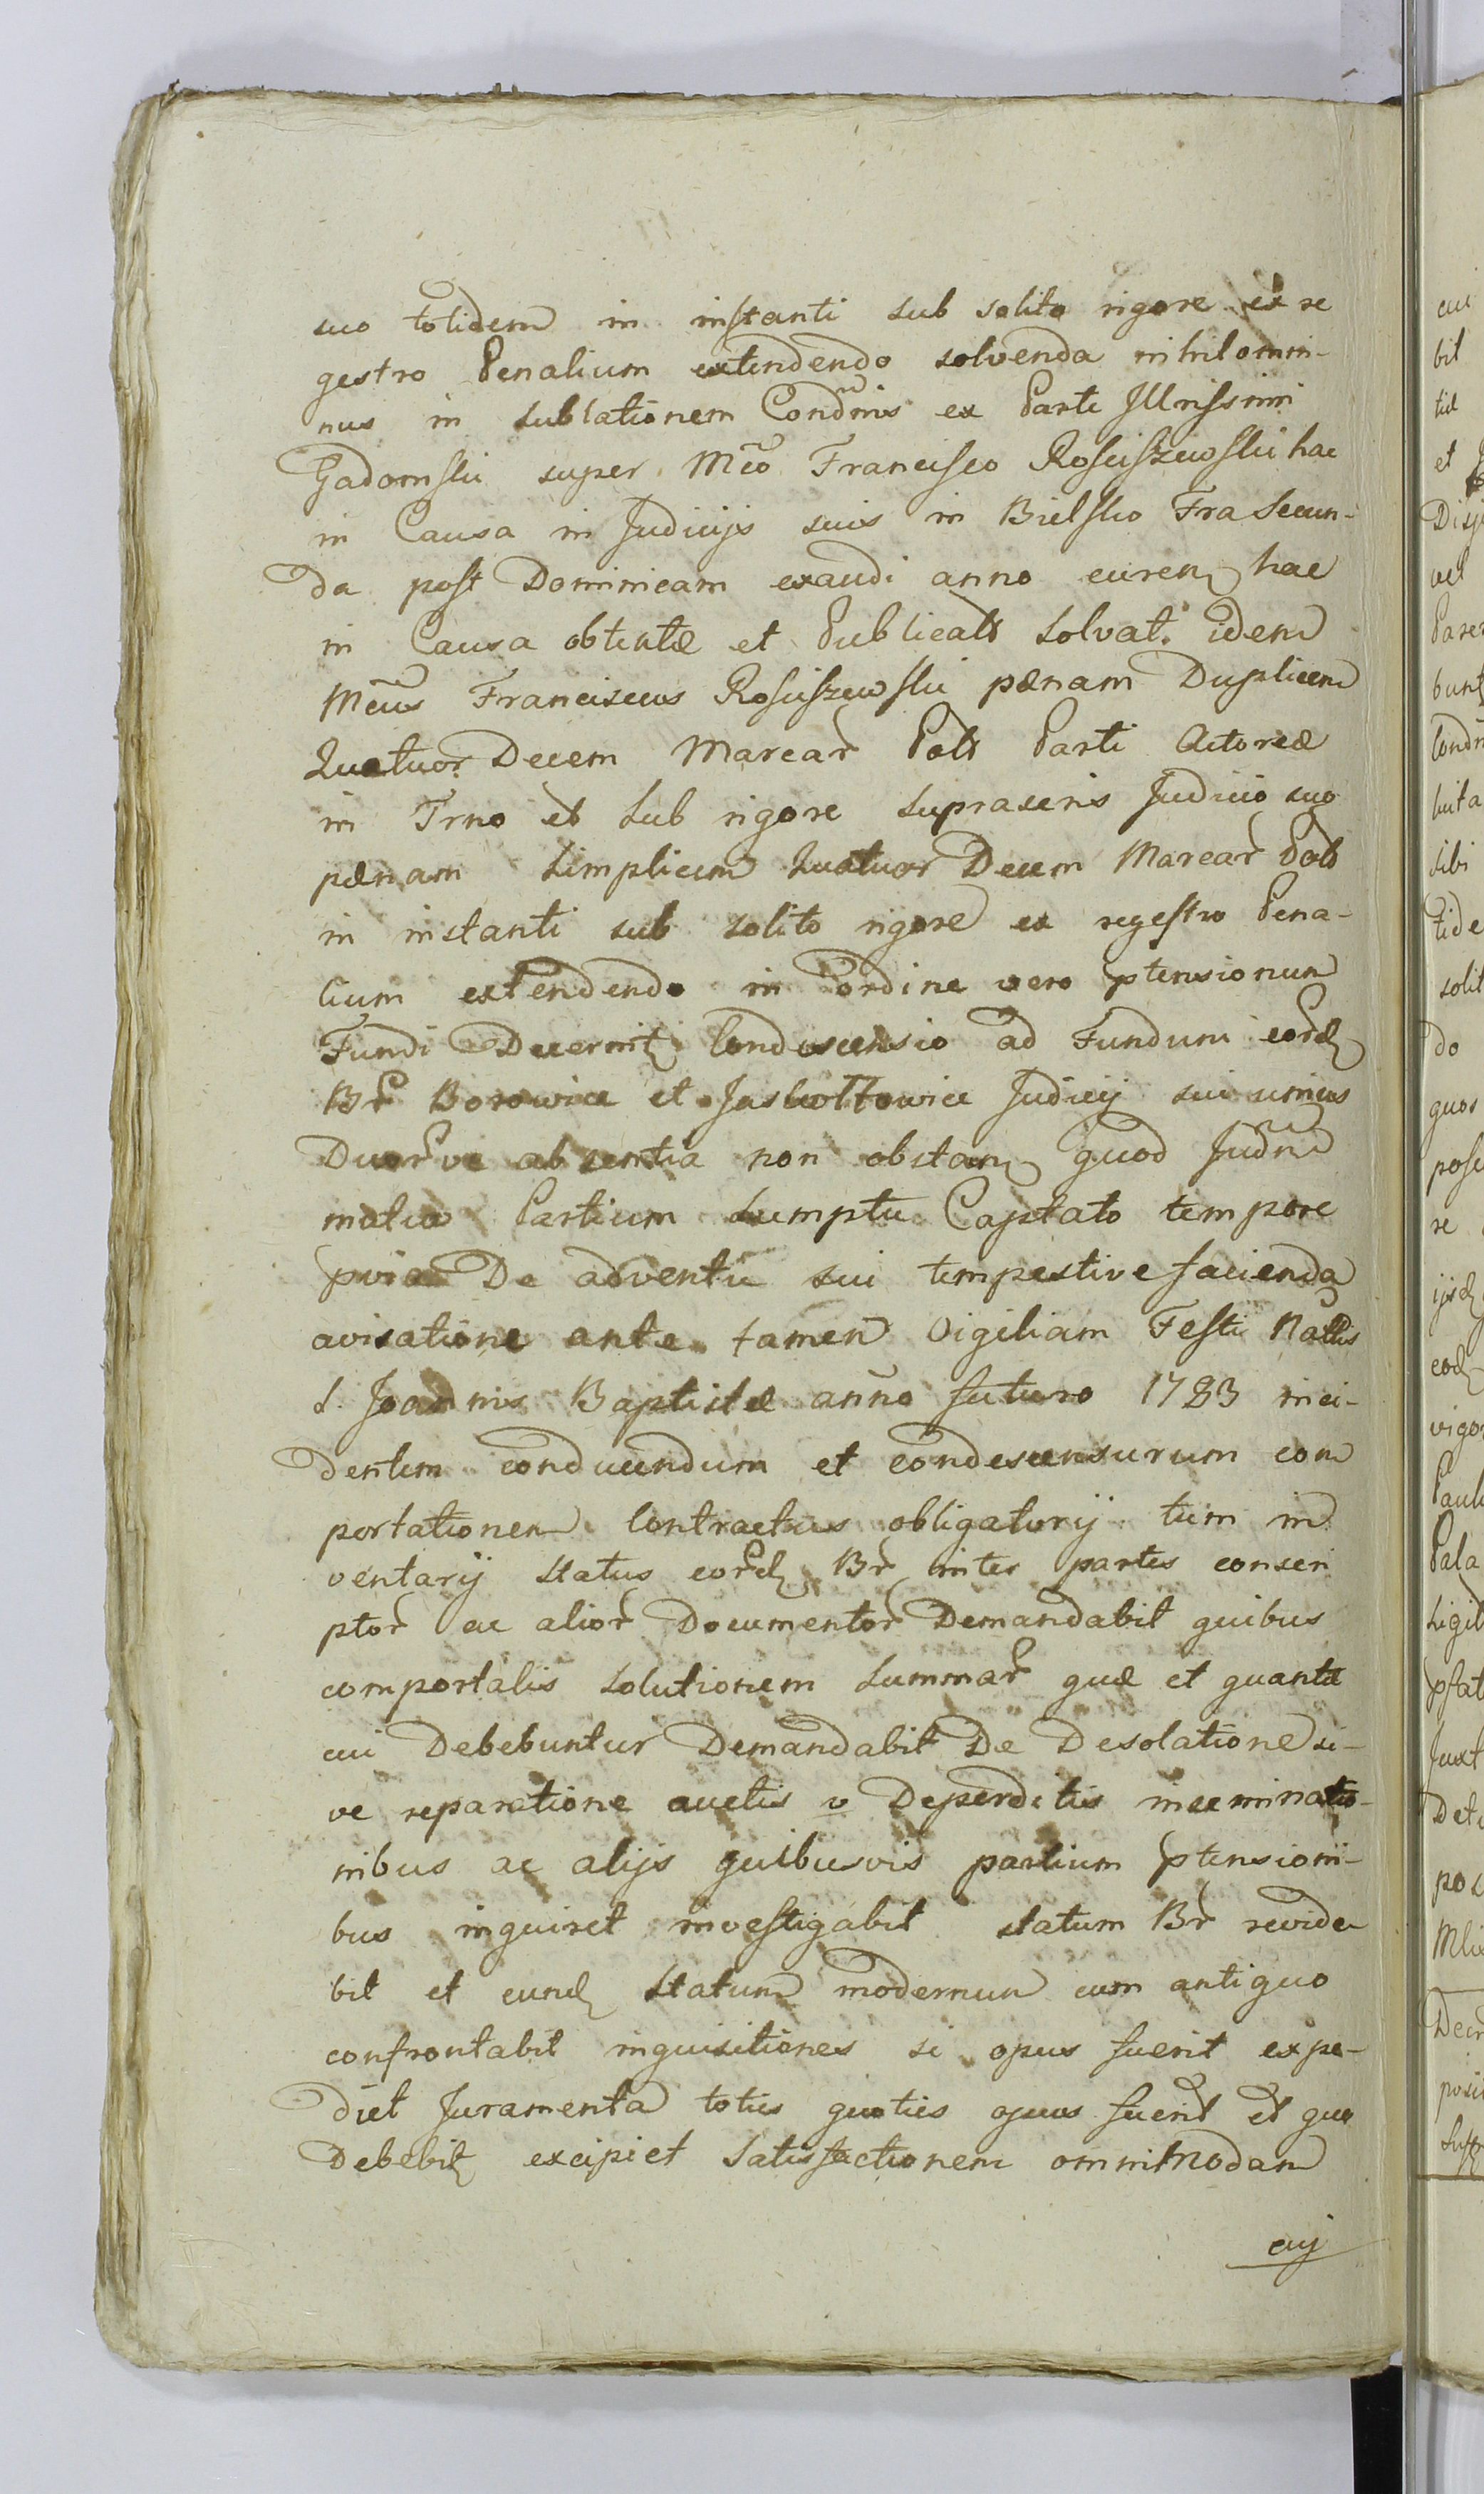 suo totidem in instanti sub solito rigore ex re
gestro Penalium extendendo solvenda nihilomi-
nus in sublationem Condnis ex Parte Illrissimi
Gadomski super Mco Francisco Rosciszewski hac
in Causa in Judicijs suis in Bielsko Fra Secun-
da post Dominicam exaudi anno curen hac
in Causa obtentæ et Publicats solvat. idem
Mcus Franciscus Rosciszewski pænam Duplicem
Quatuor Decem Marcar Pols Parti Actoreæ
in Trno et sub rigore suprascris Judicio suo
pænam simplicem Quatuor Decem Marcar Pols
in instanti sub solito rigore ex regestro Pena-
lium extendendo in ordine vero ptensionum
Fundi Decernit Condescensio ad Fundum eord
Br Borowice et Jaskottowice Judicij sui unius
Duorve absentia non obstan quod Judm
mutuo Partium sumptu Captato tempore
pvia De adventu sui tempestive facienda
avisatione ante tamen Vigiliam Festi Natlis
S. Joannis Baptistæ anno futuro 1783 inci-
dentem conducendum et condescensurum com
portationem Contractus obligatorij tum in
ventarij status eord Br inter partes conscri
ptor ac alior Documentor Demandabit quibus
comportatis solutionem summar quæ et quantæ
cui Debebuntur Demandabit De Desolatione si-
ve reparatione auctis v Deperditis inseminatio-
nibus ac alijs quibusvis partium ptensioni-
bus inquiret investigabit statum Br revide
bit et eund statum modernum cum antiquo
confrontabit inquisitiones si opus fuerit expe-
diet Juramenta toties quoties opus fuerit et quæ
Debebit excipiet satisfactionem omnimodam
cuj